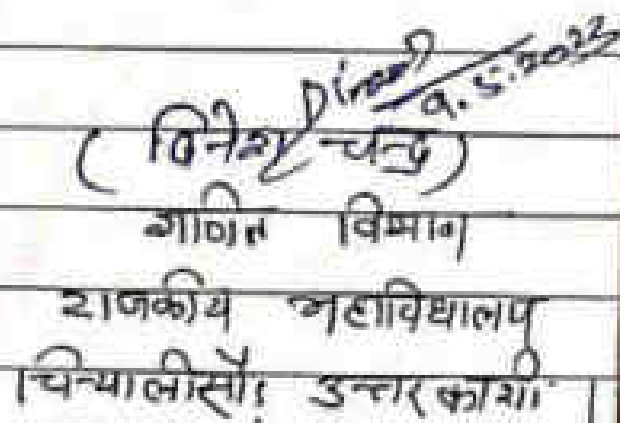 Dinesh
9.5.2022
(दिनेश चन्द्र)
गणित विभाग
राजकीय महाविद्यालय
चिन्यालीसौड़ उत्तरकाशी।